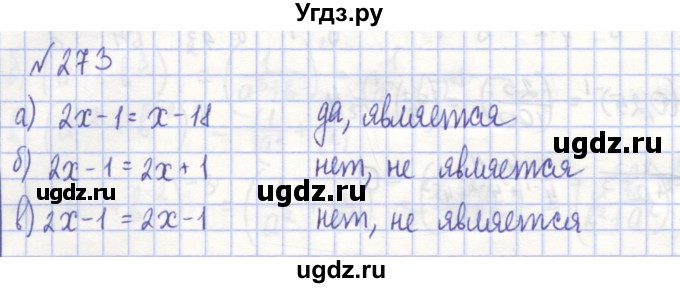 Угдз.ру
№ 273
а) 2x-1 = x-18 да, является
ugdz.ru ugdz.ru
б) 2x-1 = 2x+1 нет, не является
ugdz.ru ugdz.ru
в) 2x-1 = 2x-1 нет, не является
ugdz.ru ugdz.ru